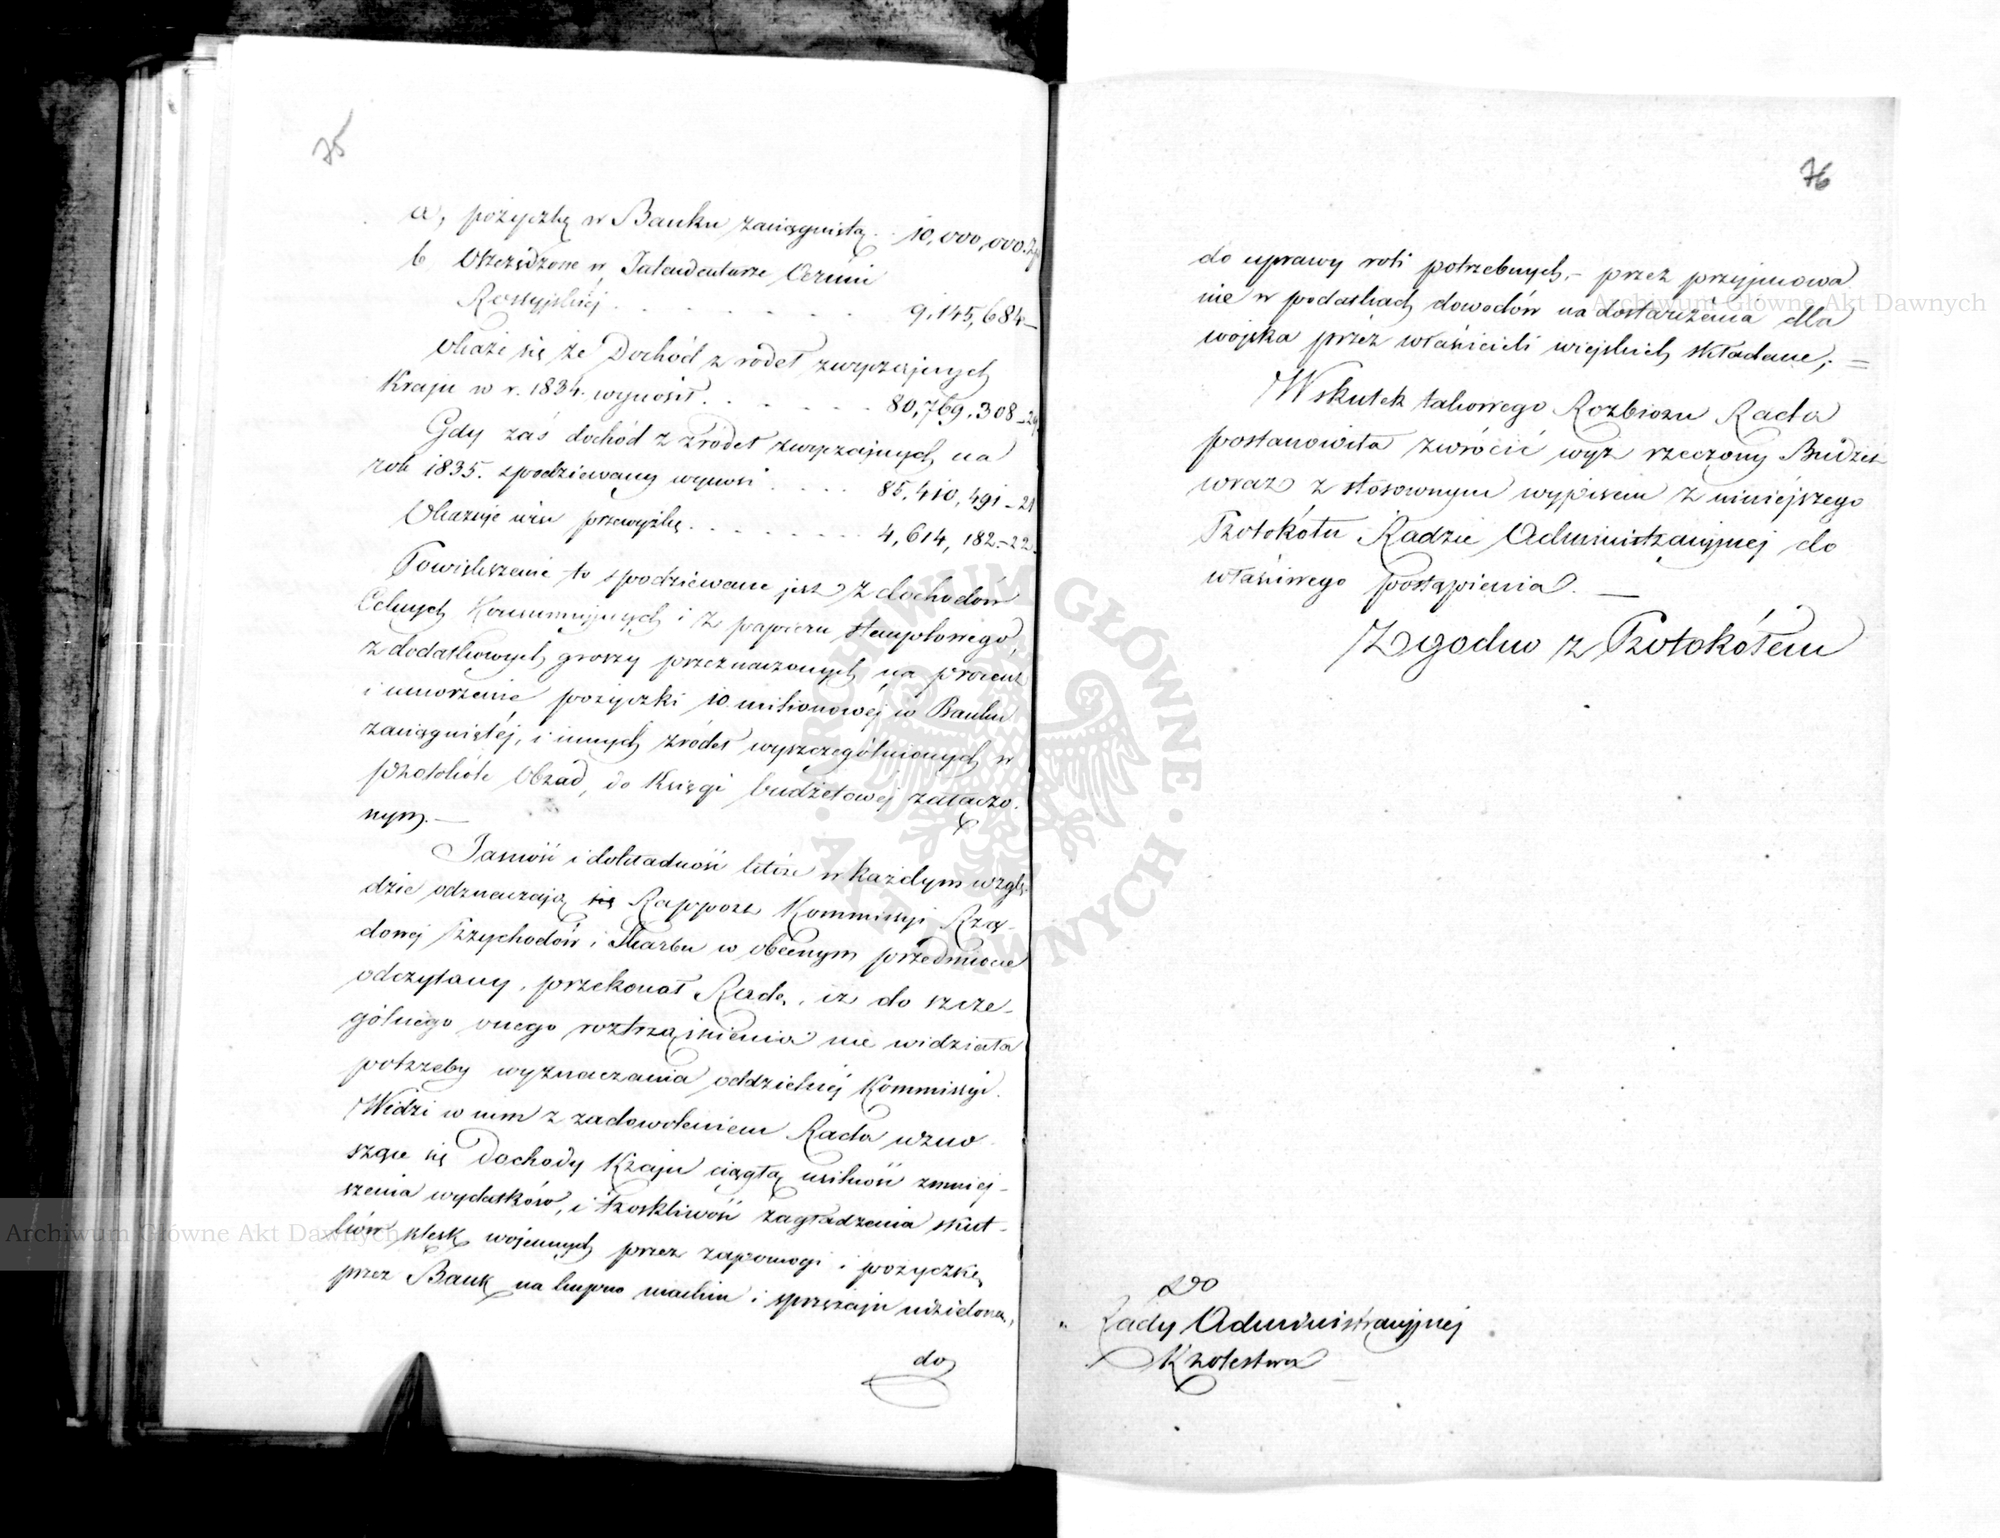 75
a, pożyczkę w Banku zaciągniętą . . 10,000,000. Zp
b, Oszczędzone w Intendenturze Armii
Rossyjskiéj . . . . . . . 9,145,684 _
Okaże się że Dochód z zrodeł zwyczajnych
Kraju w r. 1834. wynosił . . . . . . . 80,769,308 _ 29.
Gdy zaś dochód z źródeł zwyczajnych na
rok 1835. spodziewany wynosi . . . . 85,410,491 _ 21
Okazuje więc przewyżkę . . . . . . . . 4,614,182. _ 22.
Powiększenie to spodziewane jest z dochodów
Celnych Konsumcyjnych i z papieru stemplowego,
z dodatkowych groszy przeznaczonych na procent
i umorzenie pożyczki 10 milionowéj w Banku
zaciągniętéj, i innych źródeł wyszczególnionych w
protokóle Obrad, do Księgi budżetowéj załączo-
nym. —
Jasność i dokładność które w każdym wzglę-
dzie odznaczają się Rapport Kommissyi Rzą-
dowej Przychodów i Skarbu w obecnym przedmiocie
odczytany, przekonał Radę, iż do szcze-
gólnego onego roztrząśnienia nie widziała
potrzeby wyznaczania oddzielnéj Kommissyi.
Widzi w nim z zadowoleniem Rada wzno-
szące się Dochody Kraju ciągłą usilność zmniej-
szenia wydatków, i troskliwość zagładzenia skut-
ków klęsk wojennych przez zapomogi i pożyczkę
przez Bank na kupno machin i sprzężaju udzieloną,
do
76
do uprawy roli potrzebnych, – przez przyjmowa
nie w podatkach dowodów na dostarczenia dla
wojska przez właścicieli wiejskich składane; =
W skutek takowego Rozbioru Rada
postanowiła zwrócić wyż rzeczony Budżet
wraz z stosownym wypisem z niniejszego
Protokółu Radzie Administracyjnej do
właściwego postąpienia. —
Zgodno z Protokółem
Do
Rady Administracyjnej
Królestwa
Archiwum Główne Akt Dawnych
Archiwum Główne Akt Dawnych
ARCHIWUM GŁÓWNE · AKT DAWNYCH ·